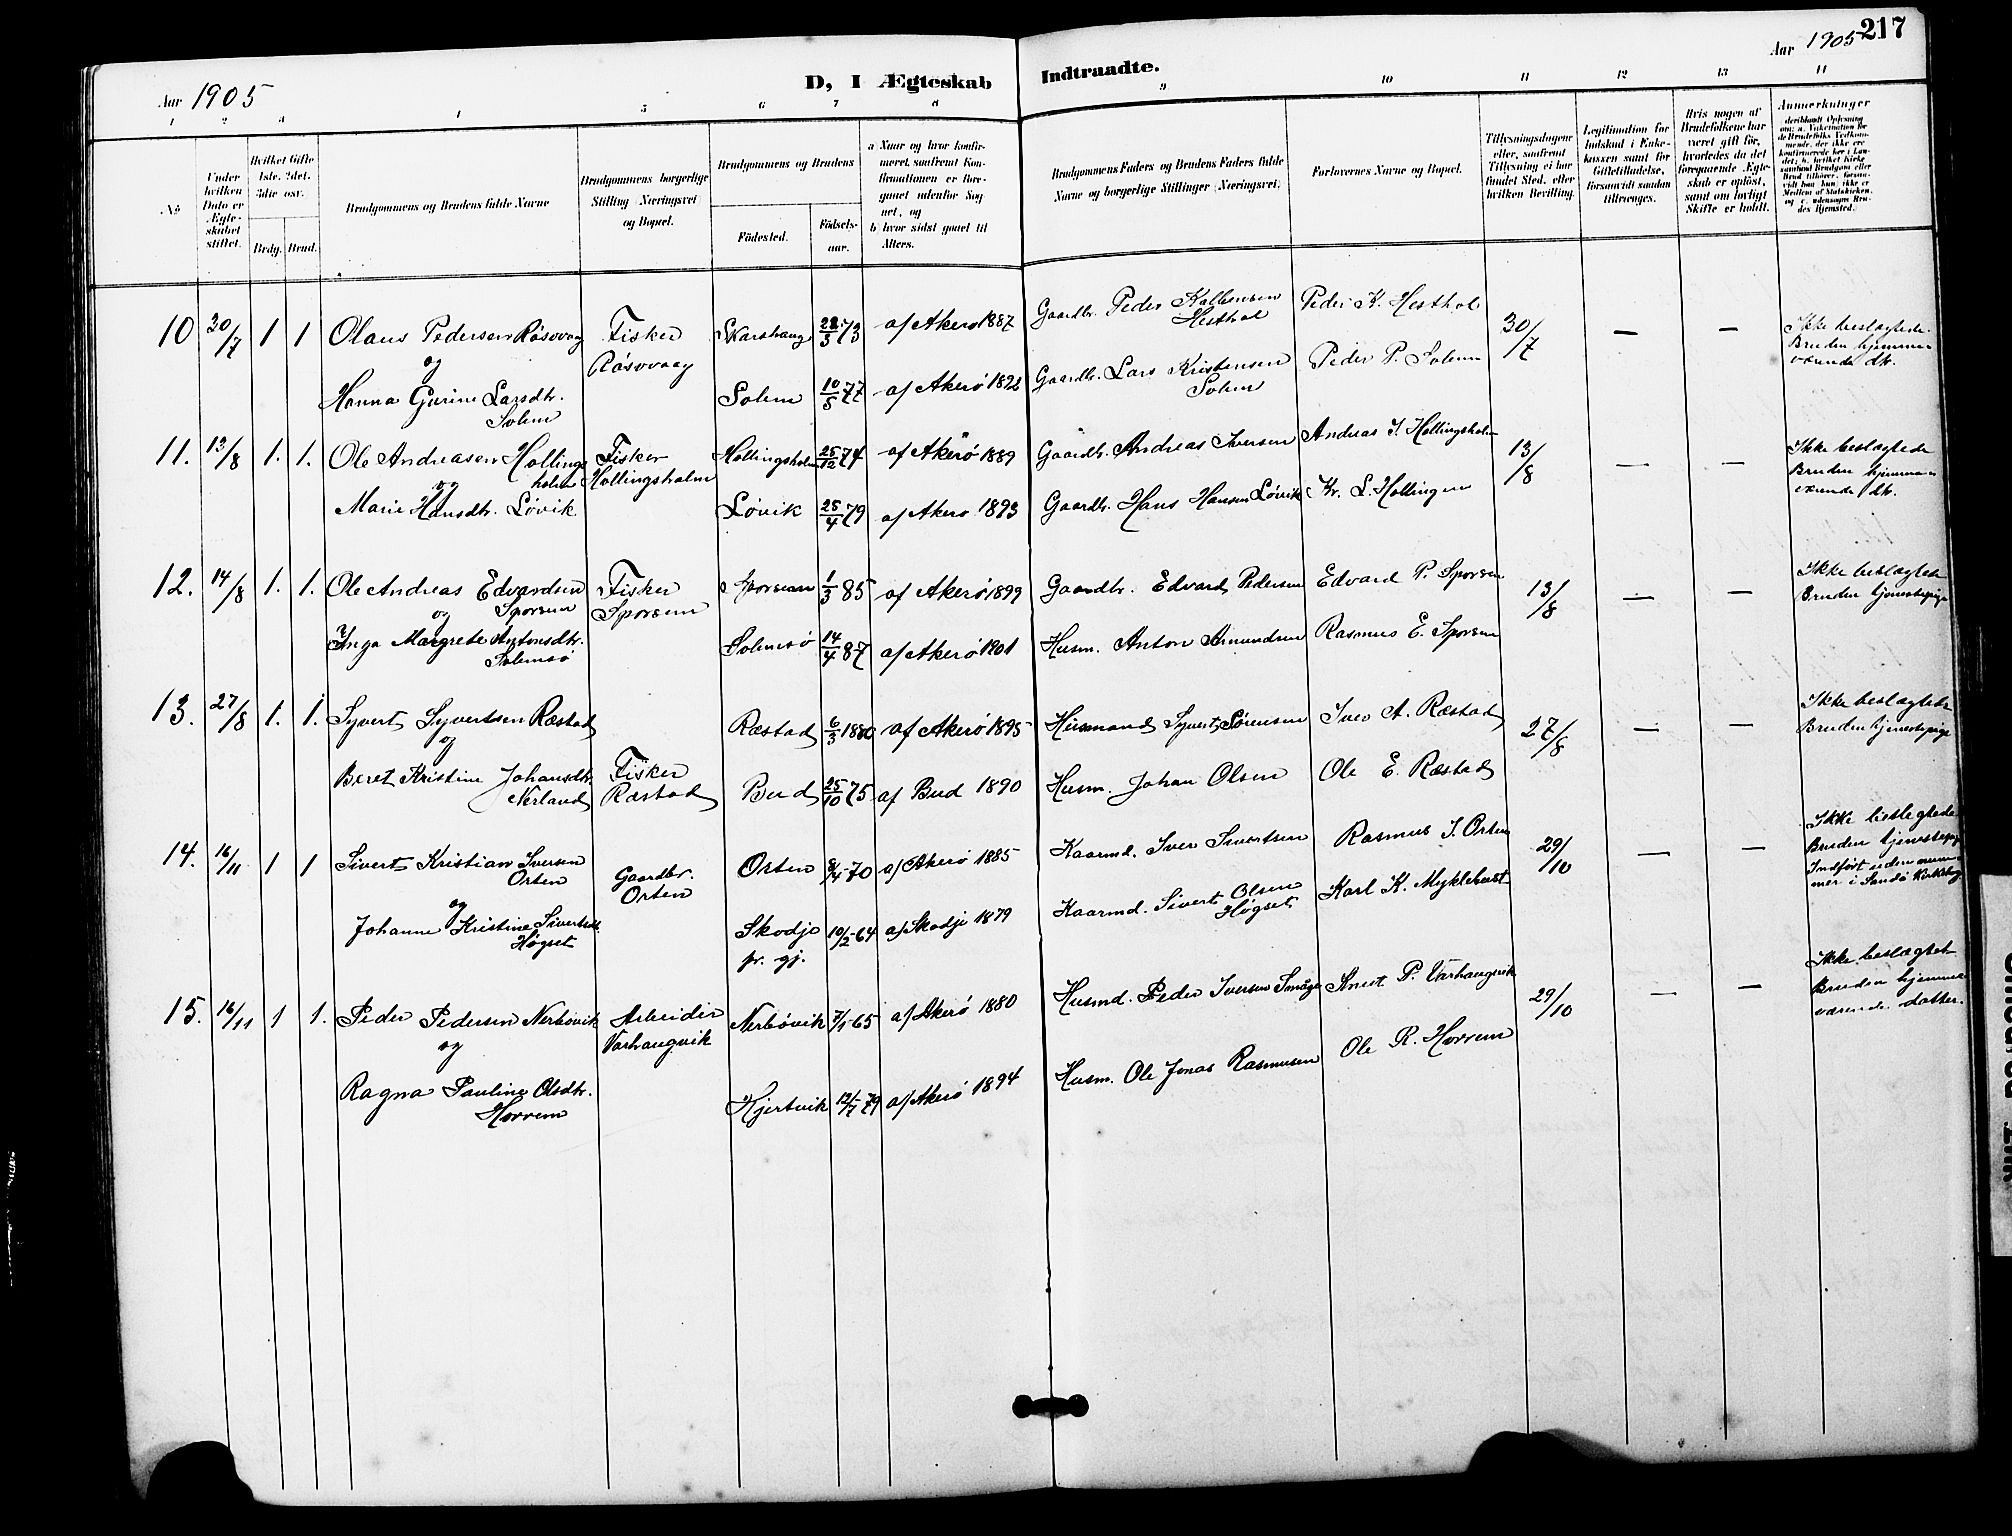 217
Aar 1905
D, I Ægteskab Indtraadte.
Aar 1905
1 2 3 4 5 6 7 8 9 10 11 12 13 14
No
Under hvilken Dato er Ægteskabet stiftet.
Hvilket Gifte 1ste, 2det, 3die osv.
Brdg. Brud.
Brudgommens og Brudens fulde Navne
Brudgommens borgerlige Stilling (Næringsvei) og Bopæl.
Brudgommens og Brudens
Födested.
Födselsaar.
a Naar og hvor konfirmeret, saafremt Konfirmationen er foregaaet udenfor Sognet, og
b hvor sidst gaaet til Alters.
Brudgommens Faders og Brudens Faders fulde Navne og borgerlige Stillinger (Næringsvei)
Forlovernes Navne og Bopæl.
Tillysningsdagene eller, saafremt Tillysning ei har fundet Sted, efter hvilken Bevilling.
Legitimation for Indskud i Enkekassen samt for Giftetilladelse, forsaavidt saadan tiltrænges.
Hvis nogen af Brudefolkene har været gift för, hvorledes da det foregaaende Ægteskab er oplöst, samt om lovligt Skifte er holdt.
Anmerkninger
10 30/7 1 1 Olaus Pedersen Røsovaag Fisker Skarshaug 28/3 73 af Akerø 1887 Gaardbr. Peder Kolbensen Hesthol Peder K. Hesthol 30/7 — — Ikke beslægtede.
og Røsovaag Bruden hjemmeværende dtr.
Hanna Gurine Larsdtr. Solem Solem 10/5 77 af Akerø 1892 Gaardbr. Lars Kristensen Solem Peder P. Solem
11. 13/8 1. 1. Ole Andreasen Hollingsholm Fisker Hollingsholm 25/12 74 af Akerø 1889 Gaardbr. Andreas Iversen Andreas I. Hollingsholm 13/8 — — Ikke beslægtede
og Hollingsholm Bruden hjemmeværende dtr.
Marie Hansdtr. Løvik Løvik 25/4 79 af Akerø 1893 Gaardbr. Hans Hansen Løvik Kr. L. Hollingen
12. 14/8 1. 1. Ole Andreas Edvardsen Sporsem Fisker Sporsem 1/3 85 af Akerø 1899 Gaardbr. Edvard Pedersen Edvard P. Sporsem 13/8 — — Ikke beslægtede
og Sporsem Bruden tjenestepige
Inga Margrete Antonsdtr. Solemsø Solemsø 14/4 87 af Akerø 1901 Husm. Anton Amundsen Rasmus E. Sporsem
13. 27/8 1. 1. Syvert Syvertsen Ræstad Ræstad 6/3 1880 af Akerø 1895 Husmand Syvert Sørensen Iver A. Ræstad 27/8 — — Ikke beslægtede
og Bruden tjenestepige
Beret Kristine Johansdtr. Nerland Fisker Ræstad Bud 25/10 75 af Bud 1890 Husm. Johan Olsen Ole E. Ræstad
14. 16/11 1 1 Sivert Kristian Iversen Orten Gaardbr. Orten Orten 8/4 70 af Akerø 1885 Kaarmd. Iver Sivertsen Rasmus I. Orten 29/10 — — Ikke beslegtede
og Bruden tjenestepige
Indført uden nummer i Sandø Kirkebog
Johanne Kristine Sivertsdtr. Høgset Skodje pr. gj. 10/2 64 af Skodje 1879 Kaarmd. Sivert Olsen Høgset Karl K. Myklebust
15. 16/11 1 1. Peder Pedersen Nerbøvik Arbeider Nerbøvik 7/1 65 af Akerø 1880 Husmd. Peder Iversen Småge Knut P. Varhaugvik 29/10 — — Ikke beslægtet
og Varhaugvik Bruden hjemmeværende datter.
Ragna Pauline Olsdtr. Horrem Kjertvik 12/7 79 af Akerø 1894 Husm. Ole Jonas Rasmusen Ole R. Horrem